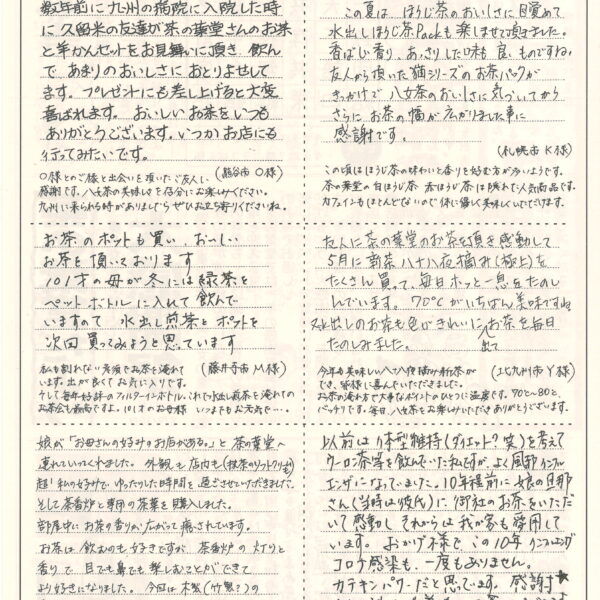 数年前に九州の病院に入院した時
に久留米の友達が茶の葉堂さんのお茶
と羊かんセットをお見舞いに頂き、飲ん
で、あまりのおいしさにおとりよせして
ます。プレゼントにも差し上げると大変
喜ばれます。おいしいお茶をいつも
ありがとうございます。いつかお店にも
行ってみたいです。
(熊谷市 O様)
O様とのご縁と出会いを頂いたご友人に
感謝です。八女茶の美味しさを存分にお楽しみください。
九州に来られる時がありましたらぜひお立ち寄りくださいね。
この夏は、ほうじ茶のおいしさに目覚めて
水出しほうじ茶Packも楽しませて頂きました。
香ばしい香り、あっさりした味も良いものですね。
友人から頂いた猫シリーズのお茶パックが
きっかけで八女茶のおいしさに気づいてから
さらにお茶の幅が広がりました事に
感謝です。
(札幌市 K様)
この頃はほうじ茶の味わいと香りを好む方が多いようです。
茶の葉堂の白ほうじ茶 赤ほうじ茶は隠れた人気商品です。
カフェインもほとんどないので体に優しく美味しくいただけます。
お茶のポットも買い、おいしい
お茶を頂いております
101才の母が冬には緑茶を
ペットボトルに入れて飲んで
いますので 水出し煎茶とポットを
次回買ってみようと思っています
(藤井寺市 M様)
私も割れない急須でお茶を淹れて
います。出が良くてお気に入りです。
そして毎年好評のフィルターインボトル、これで水出し煎茶を淹れての
お茶会も最高ですよ。101才のお母様 いつまでもお元気で…
友人に茶の葉堂のお茶を頂き感動して
5月に新茶八十八夜摘み(極上)を
たくさん買って、毎日ホッと一息をたのし
んでいます。70℃がいちばん美味ですね
水出しのお茶も色がきれいに出てお茶を毎日
たのしみました。
(北九州市 Y様)
今年も美味しい八十八夜摘み新茶が
でき、皆様に喜んでいただきました。
お茶の淹れ方で大事なポイントのひとつに温度です。70℃〜80℃と、
バッチリです。毎日、八女茶をお楽しみいただきありがとうございます。
娘が「お母さんの好みのお店がある。」と茶の葉堂へ
連れていってくれました。外観も店内も(抹茶のソフトクリームも)
超!私の好みで、ゆったりした時間を過ごさせていただきました。
そして茶香炉と専用の茶葉を購入しました。
部屋中にお茶の香りが広がって癒されています。
お茶は飲むのも好きですが、茶香炉の灯りと
香りで目でも鼻でも楽しむことができて
より好きになりました。今回は木製(竹製?)の
以前は体型維持(ダイエット?笑)を考えて
ウーロン茶等を飲んでいた私ですが、よく風邪、インフル
エンザになっていました。10年程前に娘の旦那
さん(当時は彼氏)に御社のお茶をいただ
いて感動し、それからは我が家も愛用して
います。おかげ様で、この10年インフルエンザ
コロナ感染も、一度もありません。
カテキンパワーだと思ています。感謝★